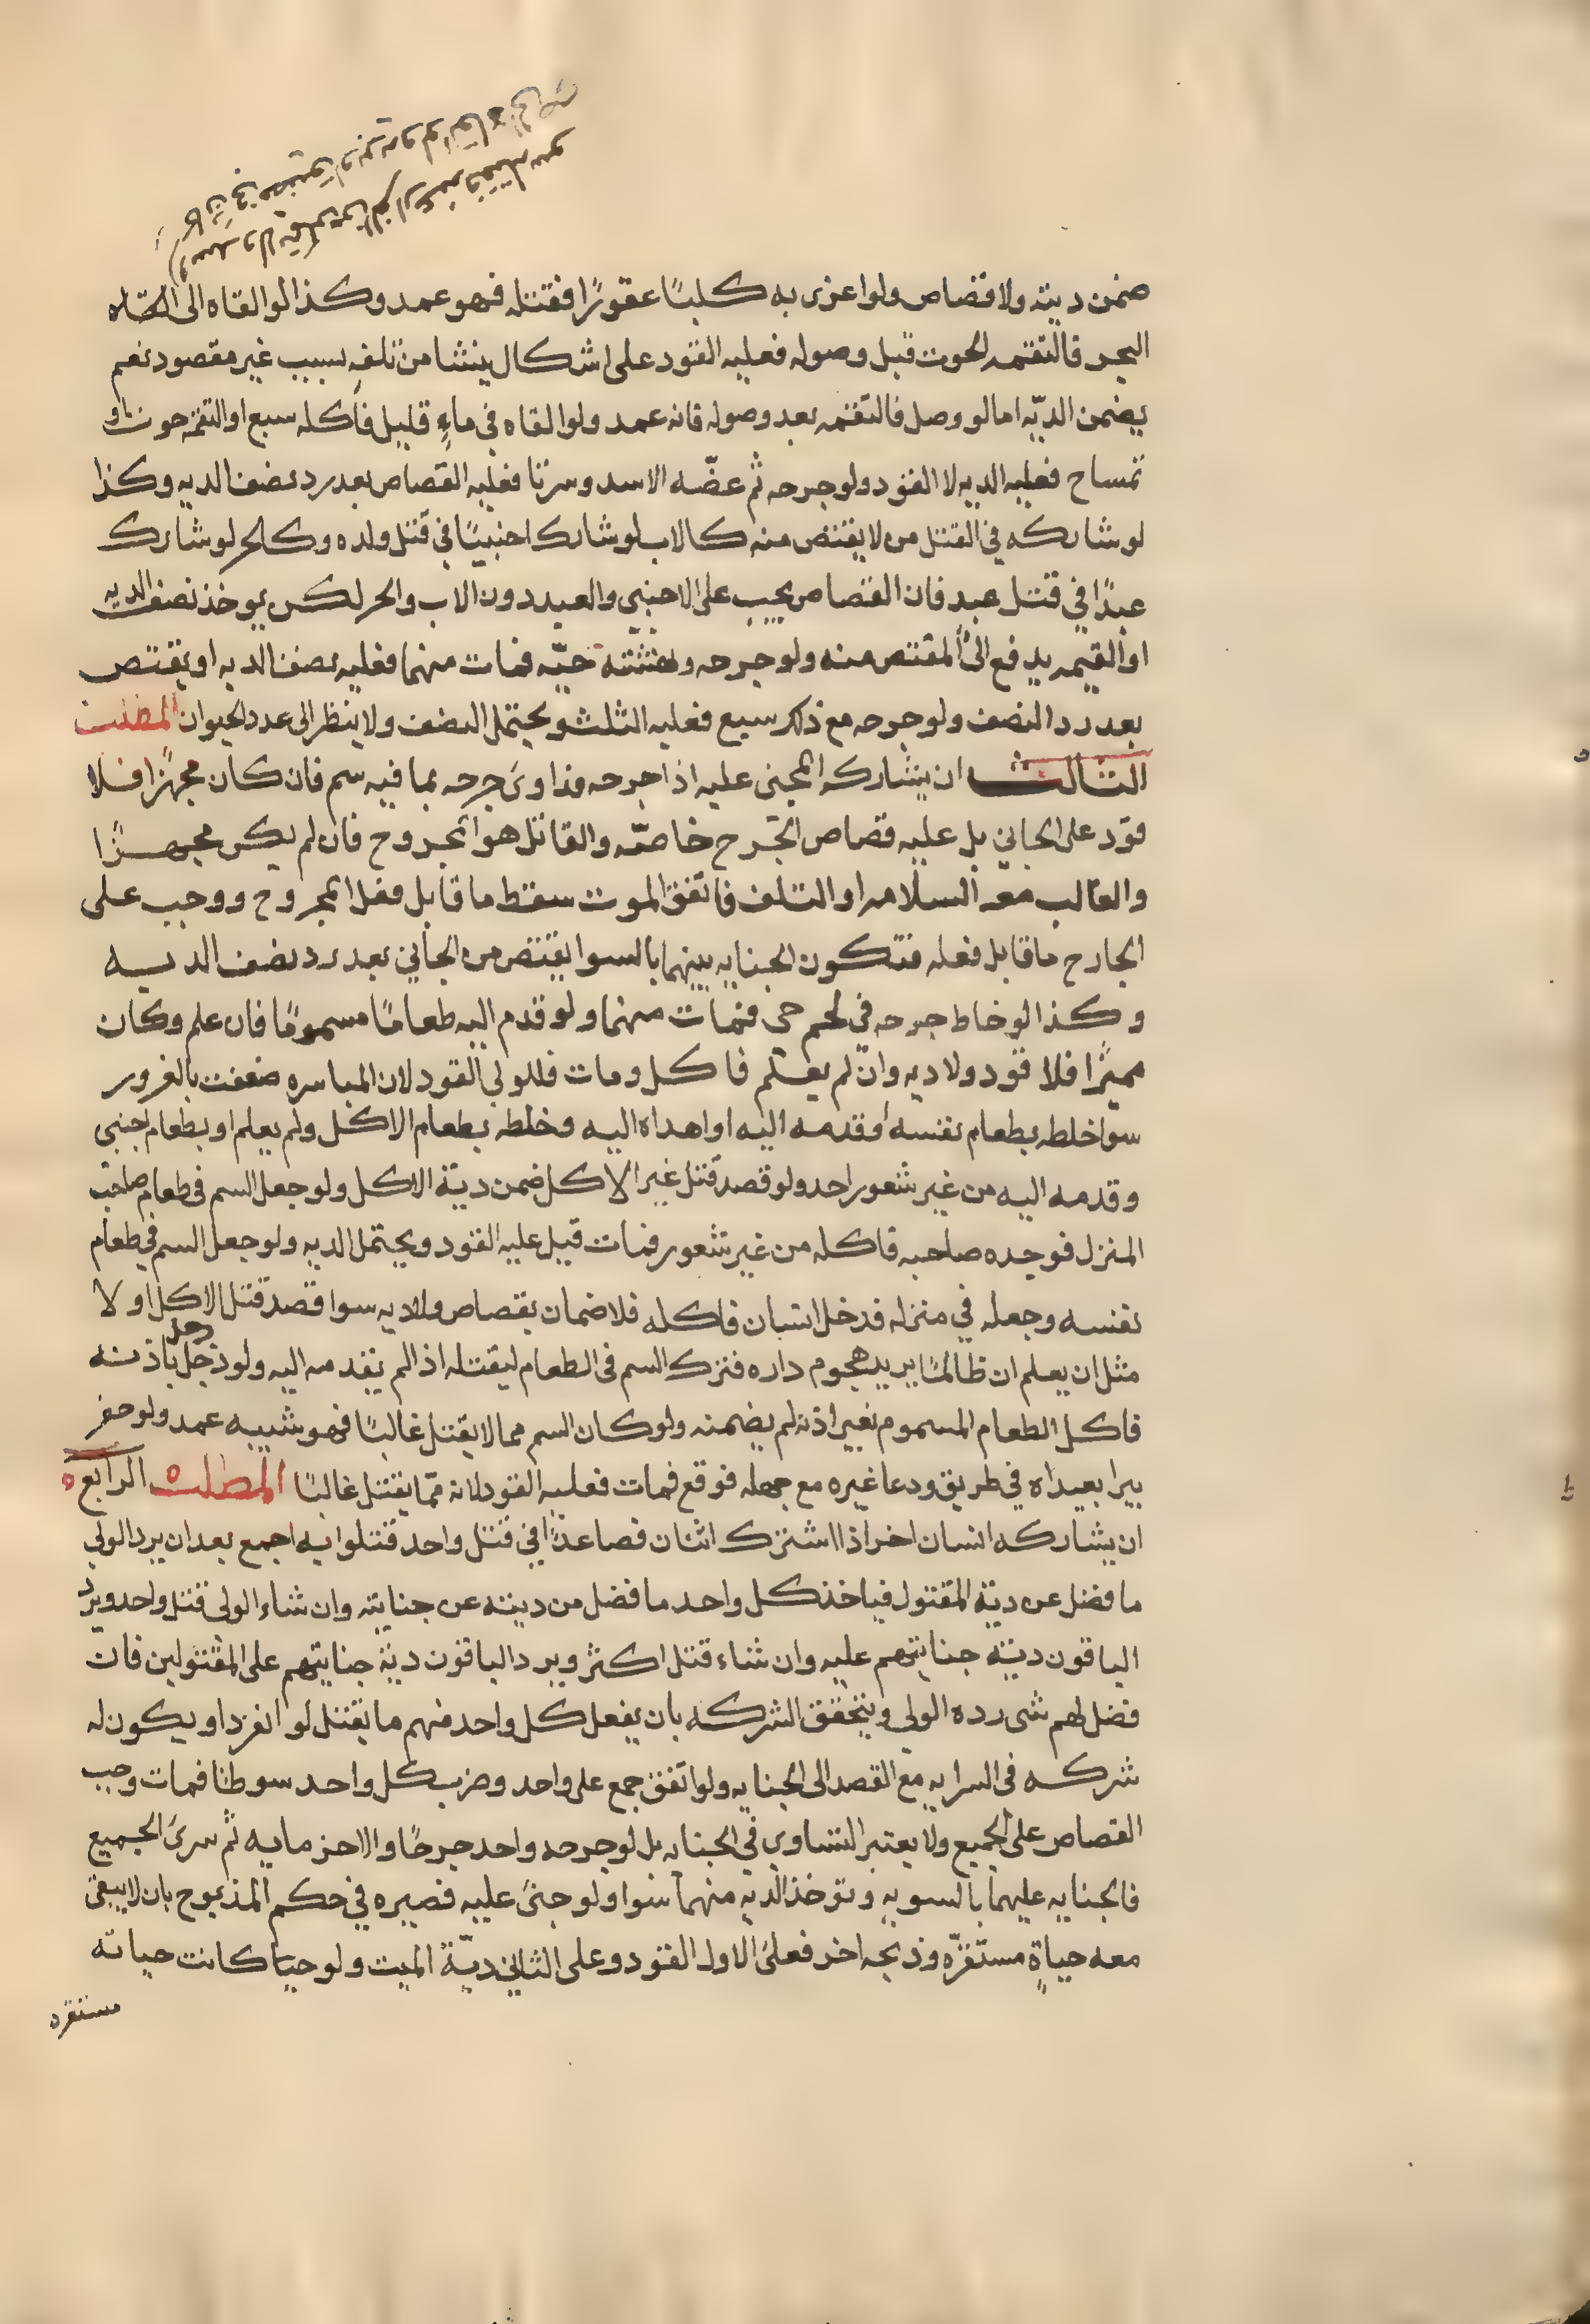 ضمن ديته ولا قصاص ولو اغرى به كلبًا عقورًا فقتله فهو عمد وكذا لو القاه الى
البحر فالتقمه الحوت قبل وصوله فعليه القود على اشكال ينشا من تلفه بسبب غير مقصود نعم
يضمن الديّه اما لو وصل فالتقمه بعد وصوله فانه عمد ولو القاه في ماءٍ قليل فاكله سبع او التقمه حوت او
تمساح فعليه الديه لا القود ولو جرحه ثم عضّه الاسد وسرتا فعليه القصاص بعد رد نصف الديه وكذا
لو شاركه في القتل من لا يقتص منه كالاب لو شارك اجنبيًا في قتل ولده وكالحر لو شارك
عبدًا في قتل عبد فان القصاص يجب على الاجنبي والعبد دون الاب والحر لكن يوخذ نصف الديه
او القيمه يدفع الى المقتص منه ولو جرحه ونهشته حيّه فمات منهما فعليه نصف الديه او يقتص
بعد رد النصف ولو جرحه مع ذلك سبع فعليه الثلث ويحتمل النصف ولا ينظر الى عدد الحيوان المطلب
الثالث ان يشاركه المجنى عليه اذا جرحه فداوى جرحه بما فيه سم فان كان مجهزًا فلا
قود على الجاني بل عليه قصاص الجرح خاصّه والقاتل هو المجروح فان لم يكن مجهزًا
والغالب معه السلامه او التلف فاتفق الموت سقط ما قابل فعل المجروح ووجب على
الجارح ما قابل فعله فتكون الجنايه بينهما بالسوا يقتص من الجاني بعد رد نصف الديه
وكذا لو خاط جرحه في لحم حي فمات منهما ولو قدم اليه طعامًا مسمومًا فان علم وكان
مميزًا فلا قود ولا ديه وان لم يعلم فاكل ومات فللولى القود لان المباسره ضعفت بالغرور
سوا خلطه بطعام نفسه وقدمه اليه او اهداه اليه وخلطه بطعام الاكل ولم يعلم او بطعام اجنبي
وقدمه اليه من غير شعور احد ولو قصد قتل غير الاكل ضمن ديّة الاكل ولو جعل السم في طعام صاحب
المنزل فوجده صاحبه فاكله من غير شعور فمات قيل عليه القود ويحتمل الديه ولو جعل السم في طعام
نفسه وجعله في منزله فدخل انسان فاكله فلا ضمان بقصاص ولا ديه سوا قصد قتل الاكل او لا
مثل ان يعلم ان ظالمًا يريد هجوم داره فترك السم في الطعام ليقتله اذا لم يقدمه اليه ولو دخل باذنه
فاكل الطعام المسموم بغير اذنه لم يضمنه ولو كان السم مما لا يقتل غالبًا فهو شبيه عمد ولو حفر
بيرا بعيداه في طريق ودعا غيره مع جهله فوقع فمات فعليه القود لانه ممّا يقتل غالبًا المطلب الرابع
ان يشاركه انسان اخر اذا اشترك اثنان فصاعدًا في قتل واحد قتلوا به اجمع بعد ان يرد الولي
ما فضل عن ديّة المقتول فياخذ كل واحد ما فضل من ديته عن جنايته وان شاء الولى قتل واحد ويرد
الباقون ديته جنايتهم عليه وان شاء قتل اكثر ويرد الباقون ديّة جنايتهم على المقتولين فان
فضل لهم شى رده الولي ويتحقق الشركه بان يفعل كل واحد منهم ما يقتل لو انفرد او يكون له
شركه في السرايه مع القصد الى الجنايه ولو اتفق جمع على واحد وضرب كل واحد سوطا فمات وجب
القصاص على الجميع ولا يعتبر التساوي في الجنايه بل لو جرحه واحد جرحًا والاخر مايه ثم سرى الجميع
فالجنايه عليهما بالسويه وتوخذ الديه منهما سوا ولو جنى عليه فصيره في حكم المذبوح بان لا يبقى
معه حياةٍ مستقرّه وذبحه اخر فعلى الاول القود وعلى الثاني ديّة الميت ولو كانت حياته
مستقره